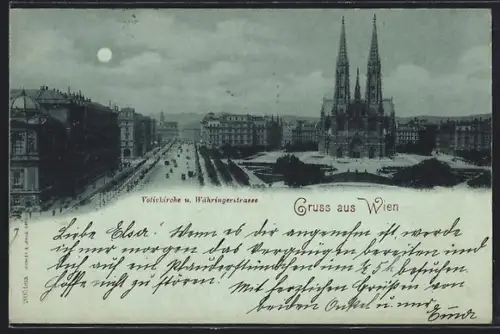 Votivkirche u. Währingerstrasse
Gruss aus Wien
Liebe Elsa! Wenn es dir angenehm ist, werde
ich mir morgen das Vergnügen bereiten und
dich auf ein Plauderstündchen um ½ 5 h besuchen.
Hoffe nicht zu stören! Mit herzlichen Grüßen von
beiden Onkel u. mir